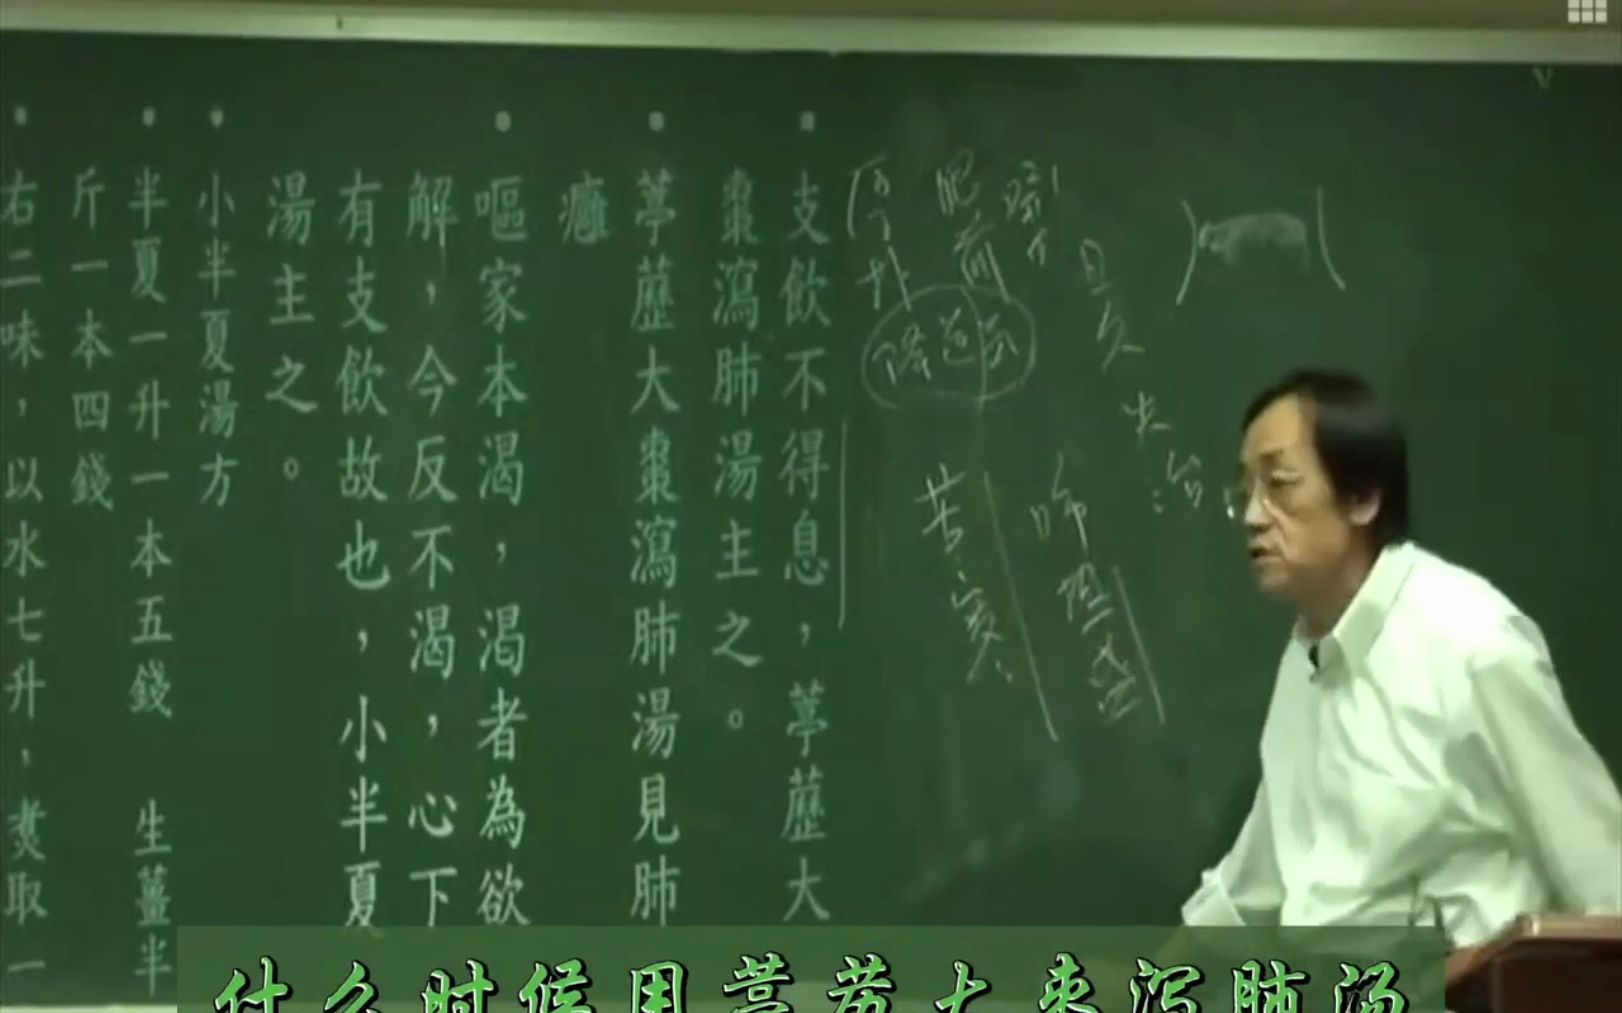 支飲不得息，葶藶大
棗瀉肺湯主之。
葶藶大棗瀉肺湯見肺
癰
嘔家本渴，渴者為欲
解，今反不渴，心下
有支飲故也，小半夏
湯主之。
小半夏湯方
半夏一升一本五錢 生薑半
斤一本四錢
右二味，以水七升，煑取一
肥
前
苦
什么时候用葶苈大枣泻肺汤